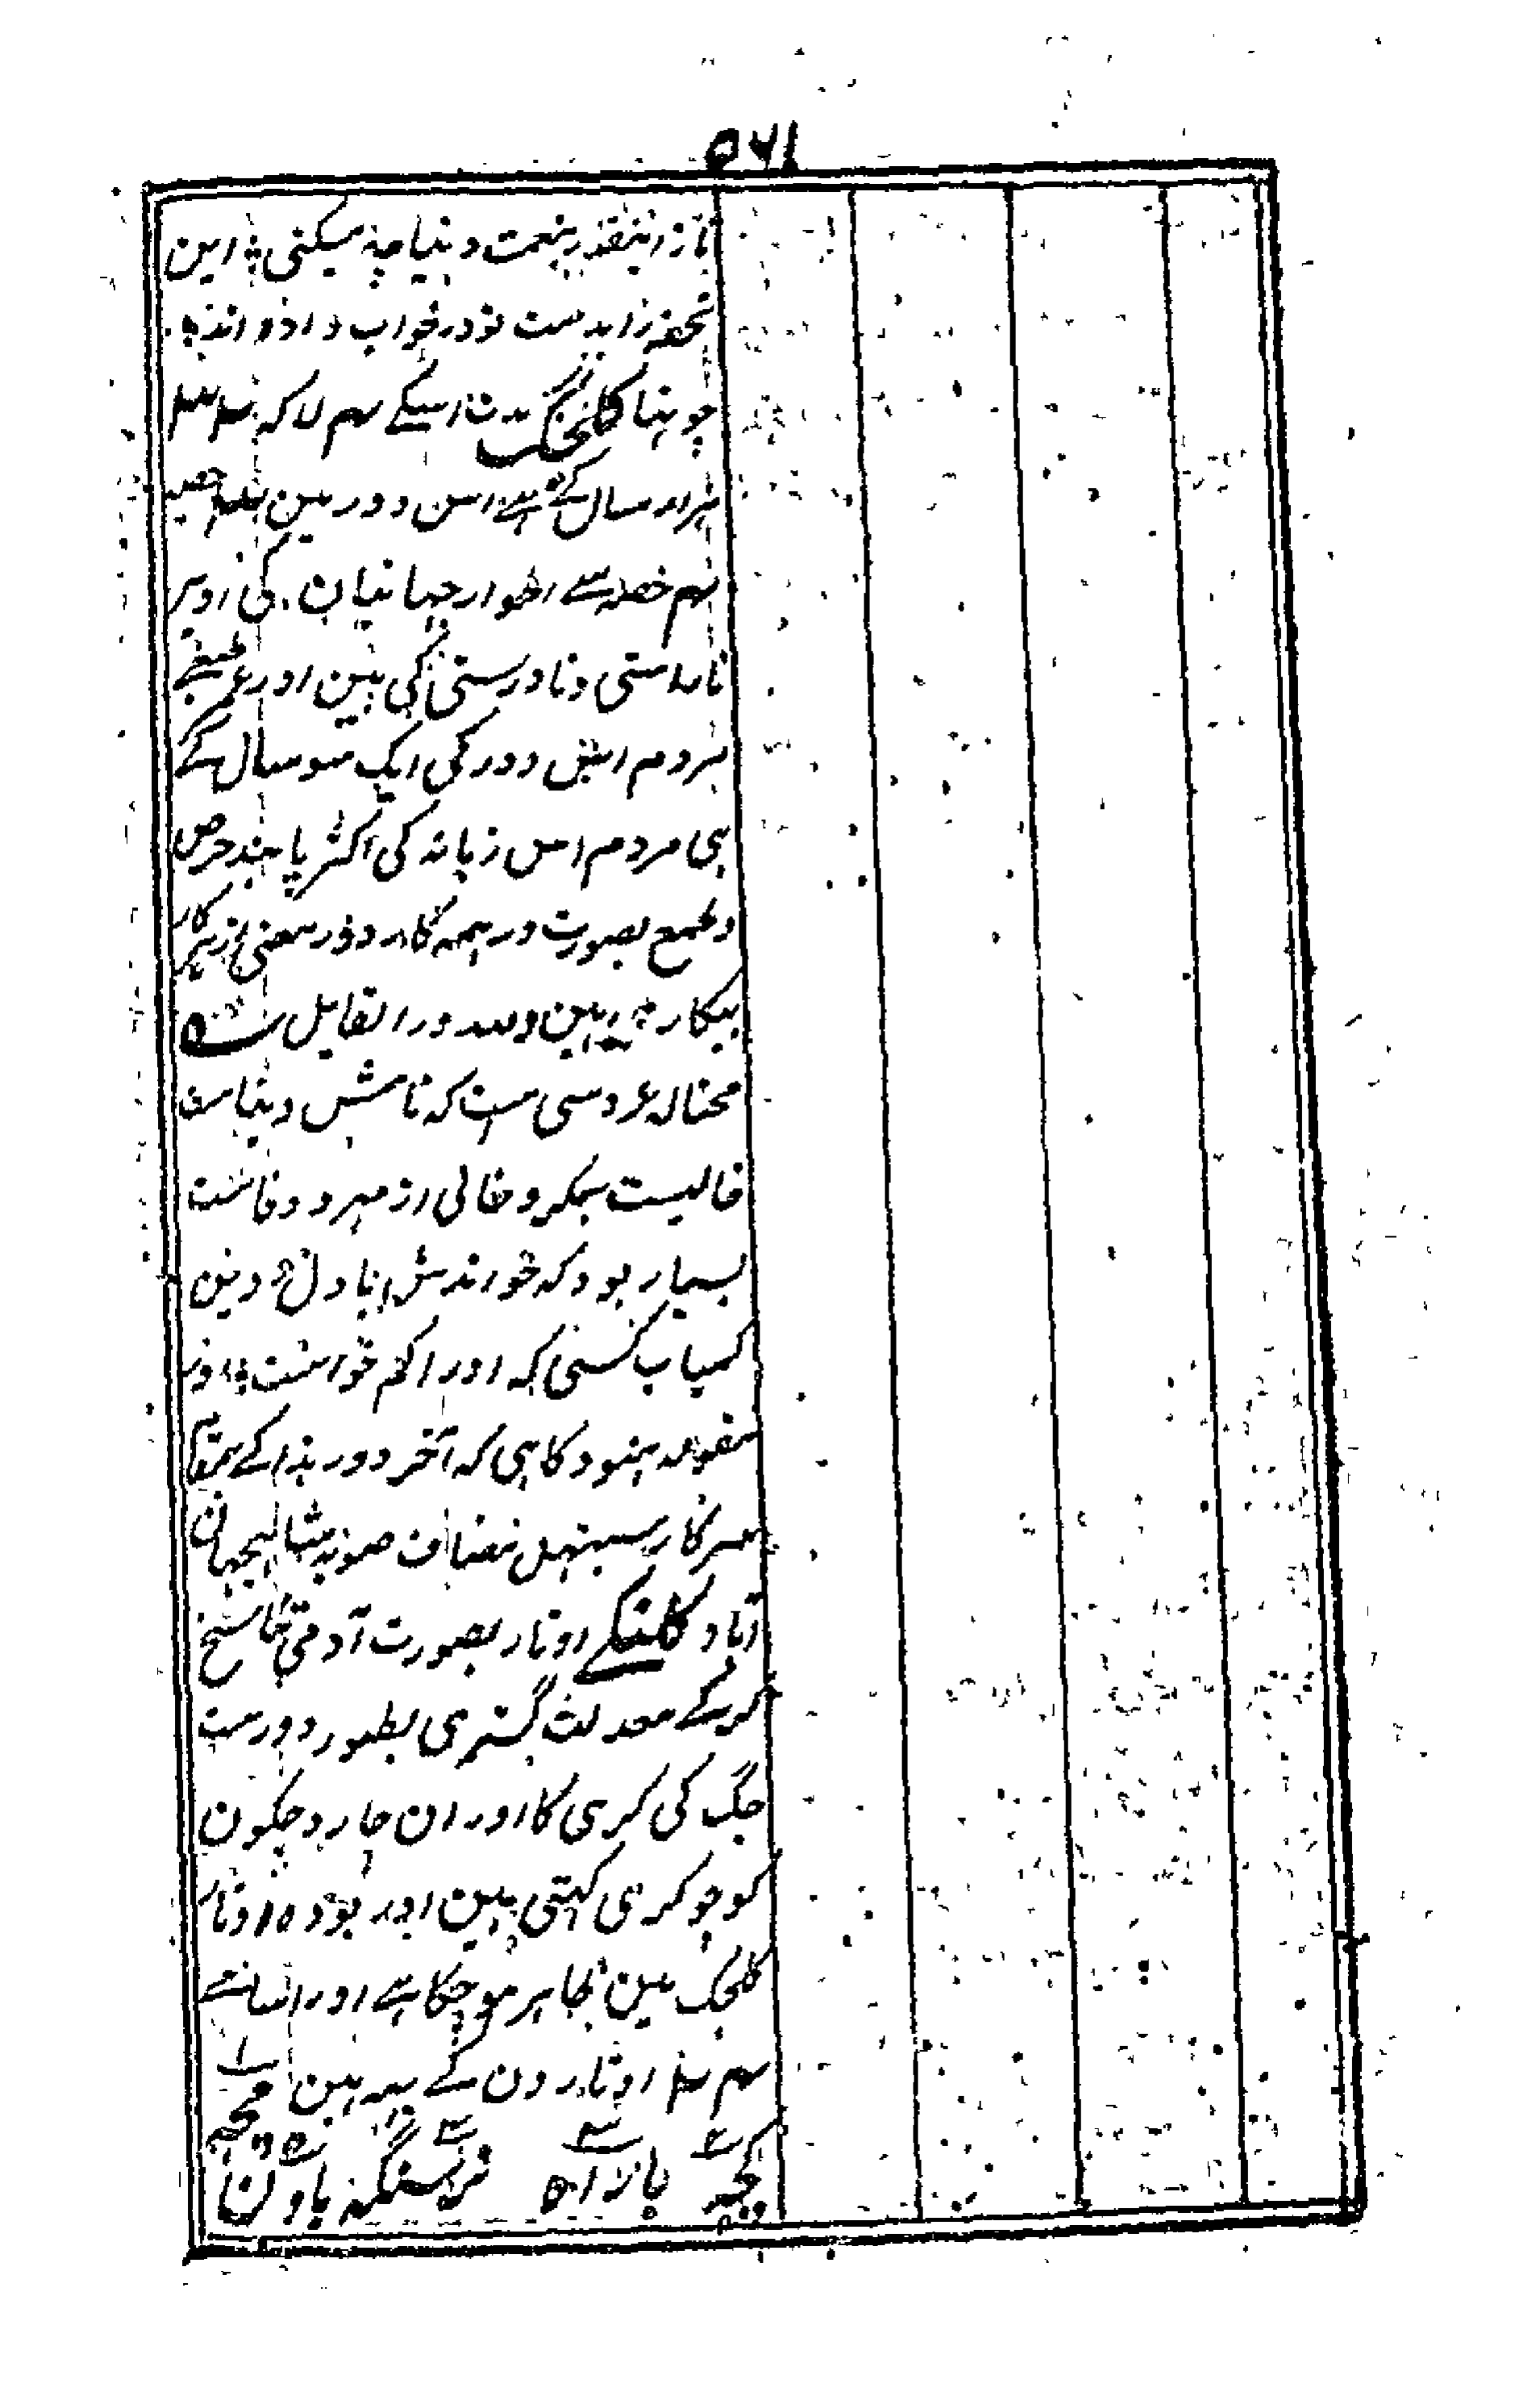 ۵۶۱
ناز اینقدر بنعمت دنیا چہ میکنی ؛ این
تحفہ را بدست تو در خواب دادہ اند ؛
چوتھا کلجگ مدت اسکے ۴ لاکہ ۳۲
ہزار سال کے ہے اس دور مین ۳ حصہ
۴ حصہ سے اطوار جہانیان کی اوپر
ناراستی و نادرستی کی ہین اور عمر طبیعے
مردم اس دور کی ایک سو سال کے
ہی مردم اس زمانہ کی اکثر پابند حرص
وطمع بصورت در ہمہ کار و در معنی از ہمہ کار
بیکار ہین وللہ در القایل
محتالہ عروسی ست کہ نامش دنیاست
بمکر و خالی از مہر و وفاست
بسیار بود کہ خواندش با دل و دین
کمیاب کسی کہ اورا کم خواست ؛ اور
مقولہ ہنود کا ہی کہ آخر دور ہذا کے بمقام
سرکار سنبہل مضاف صوبہ شاہجہان
آباد کلنکے اوتار بصورت آدمی
کرکے معدلت گستری بطور دور ست
جگ کی کری کا اور ان چار و جگون
کو چوکری کہتی ہین اور بودہ اوتار
کلجگ مین ظاہر ہو چکا ہے اور
۲۴ اوتارون کے یہہ ہین ۱ مچھ
۲ کچھ ۳ باراہ ۴ نرسنگہ ۵ باون